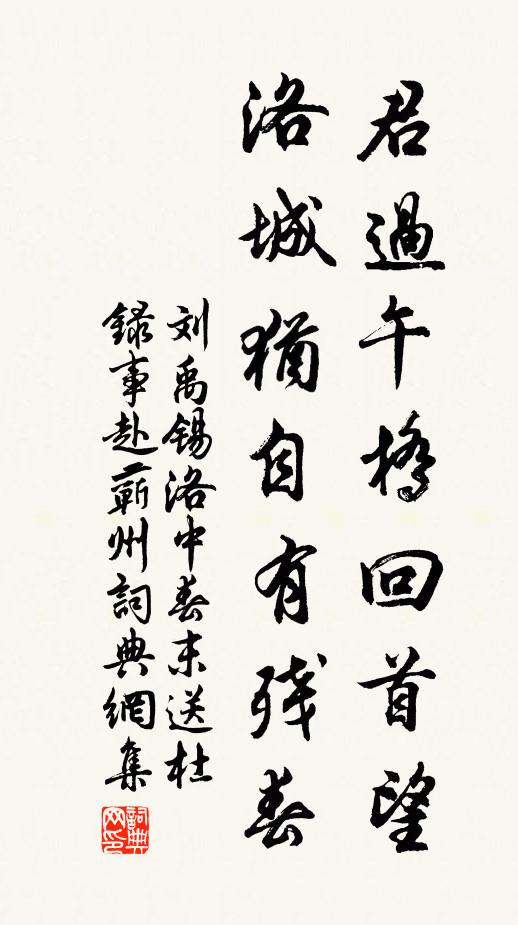 君過午橋回首望
洛城猶自有残春
刘禹錫洛中春末送杜
録事赴蘄州詞典網集
詞典网印